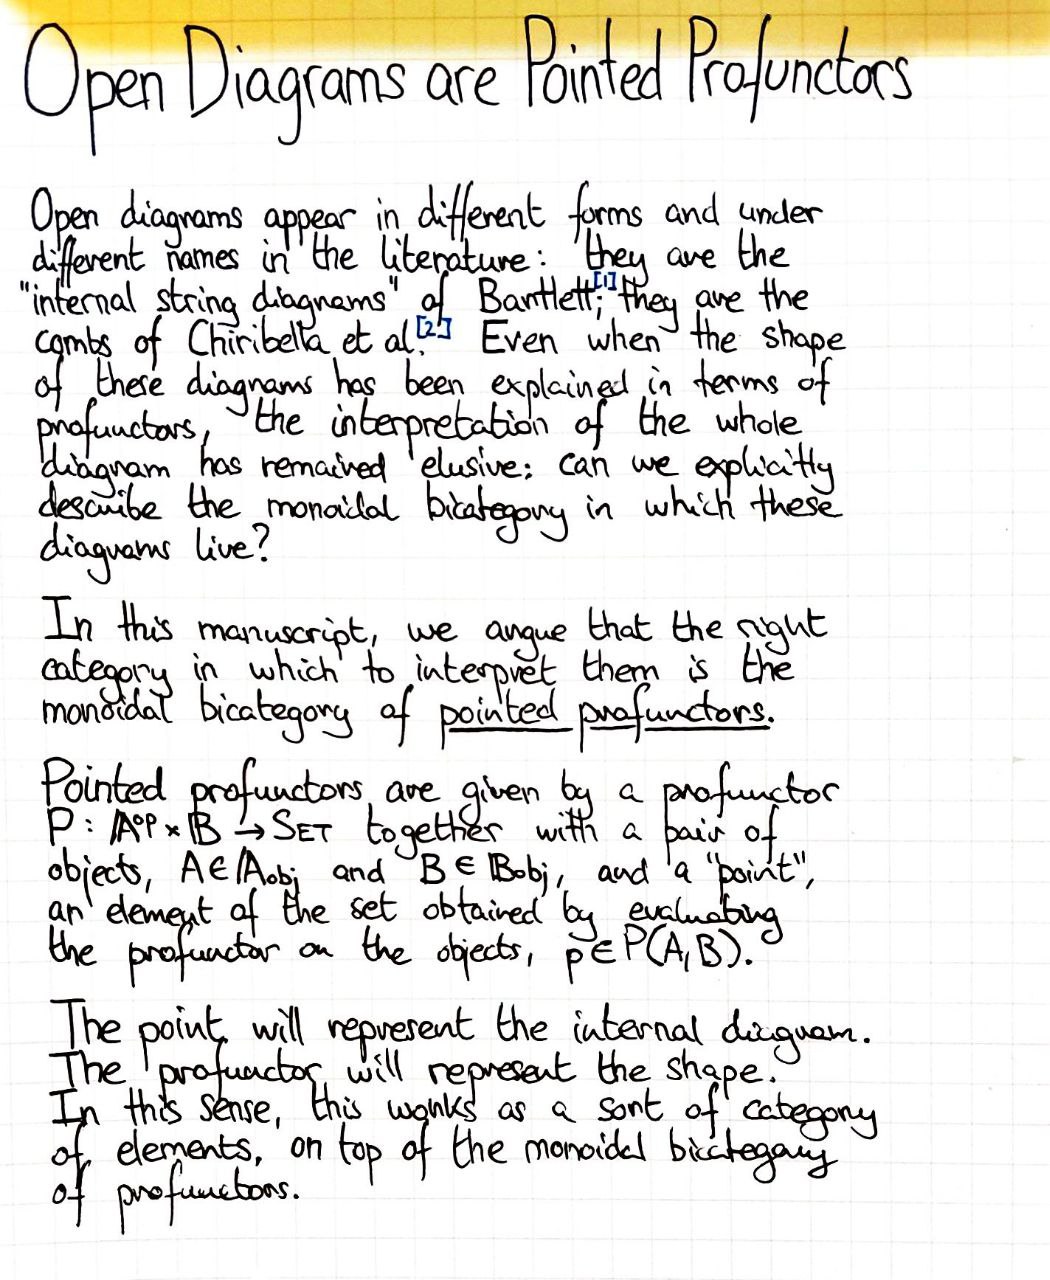 Open Diagrams are Pointed Profunctors
Open diagrams appear in different forms and under
different names in the literature: they are the
"internal string diagrams" of Bartlett;[1] they are the
combs of Chiribella et al.[2] Even when the shape
of these diagrams has been explained in terms of
profunctors, the interpretation of the whole
diagram has remained elusive: can we explicitly
describe the monoidal bicategory in which these
diagrams live?
In this manuscript, we argue that the right
category in which to interpret them is the
monoidal bicategory of pointed profunctors.
Pointed profunctors are given by a profunctor
P: 𝔸ᵒᵖ × 𝔹 → SET together with a pair of
objects, A ∈ 𝔸obj and B ∈ 𝔹obj, and a "point",
an element of the set obtained by evaluating
the profunctor on the objects, p ∈ P(A, B).
The point will represent the internal diagram.
The profunctor will represent the shape.
In this sense, this works as a sort of category
of elements, on top of the monoidal bicategory
of profunctors.